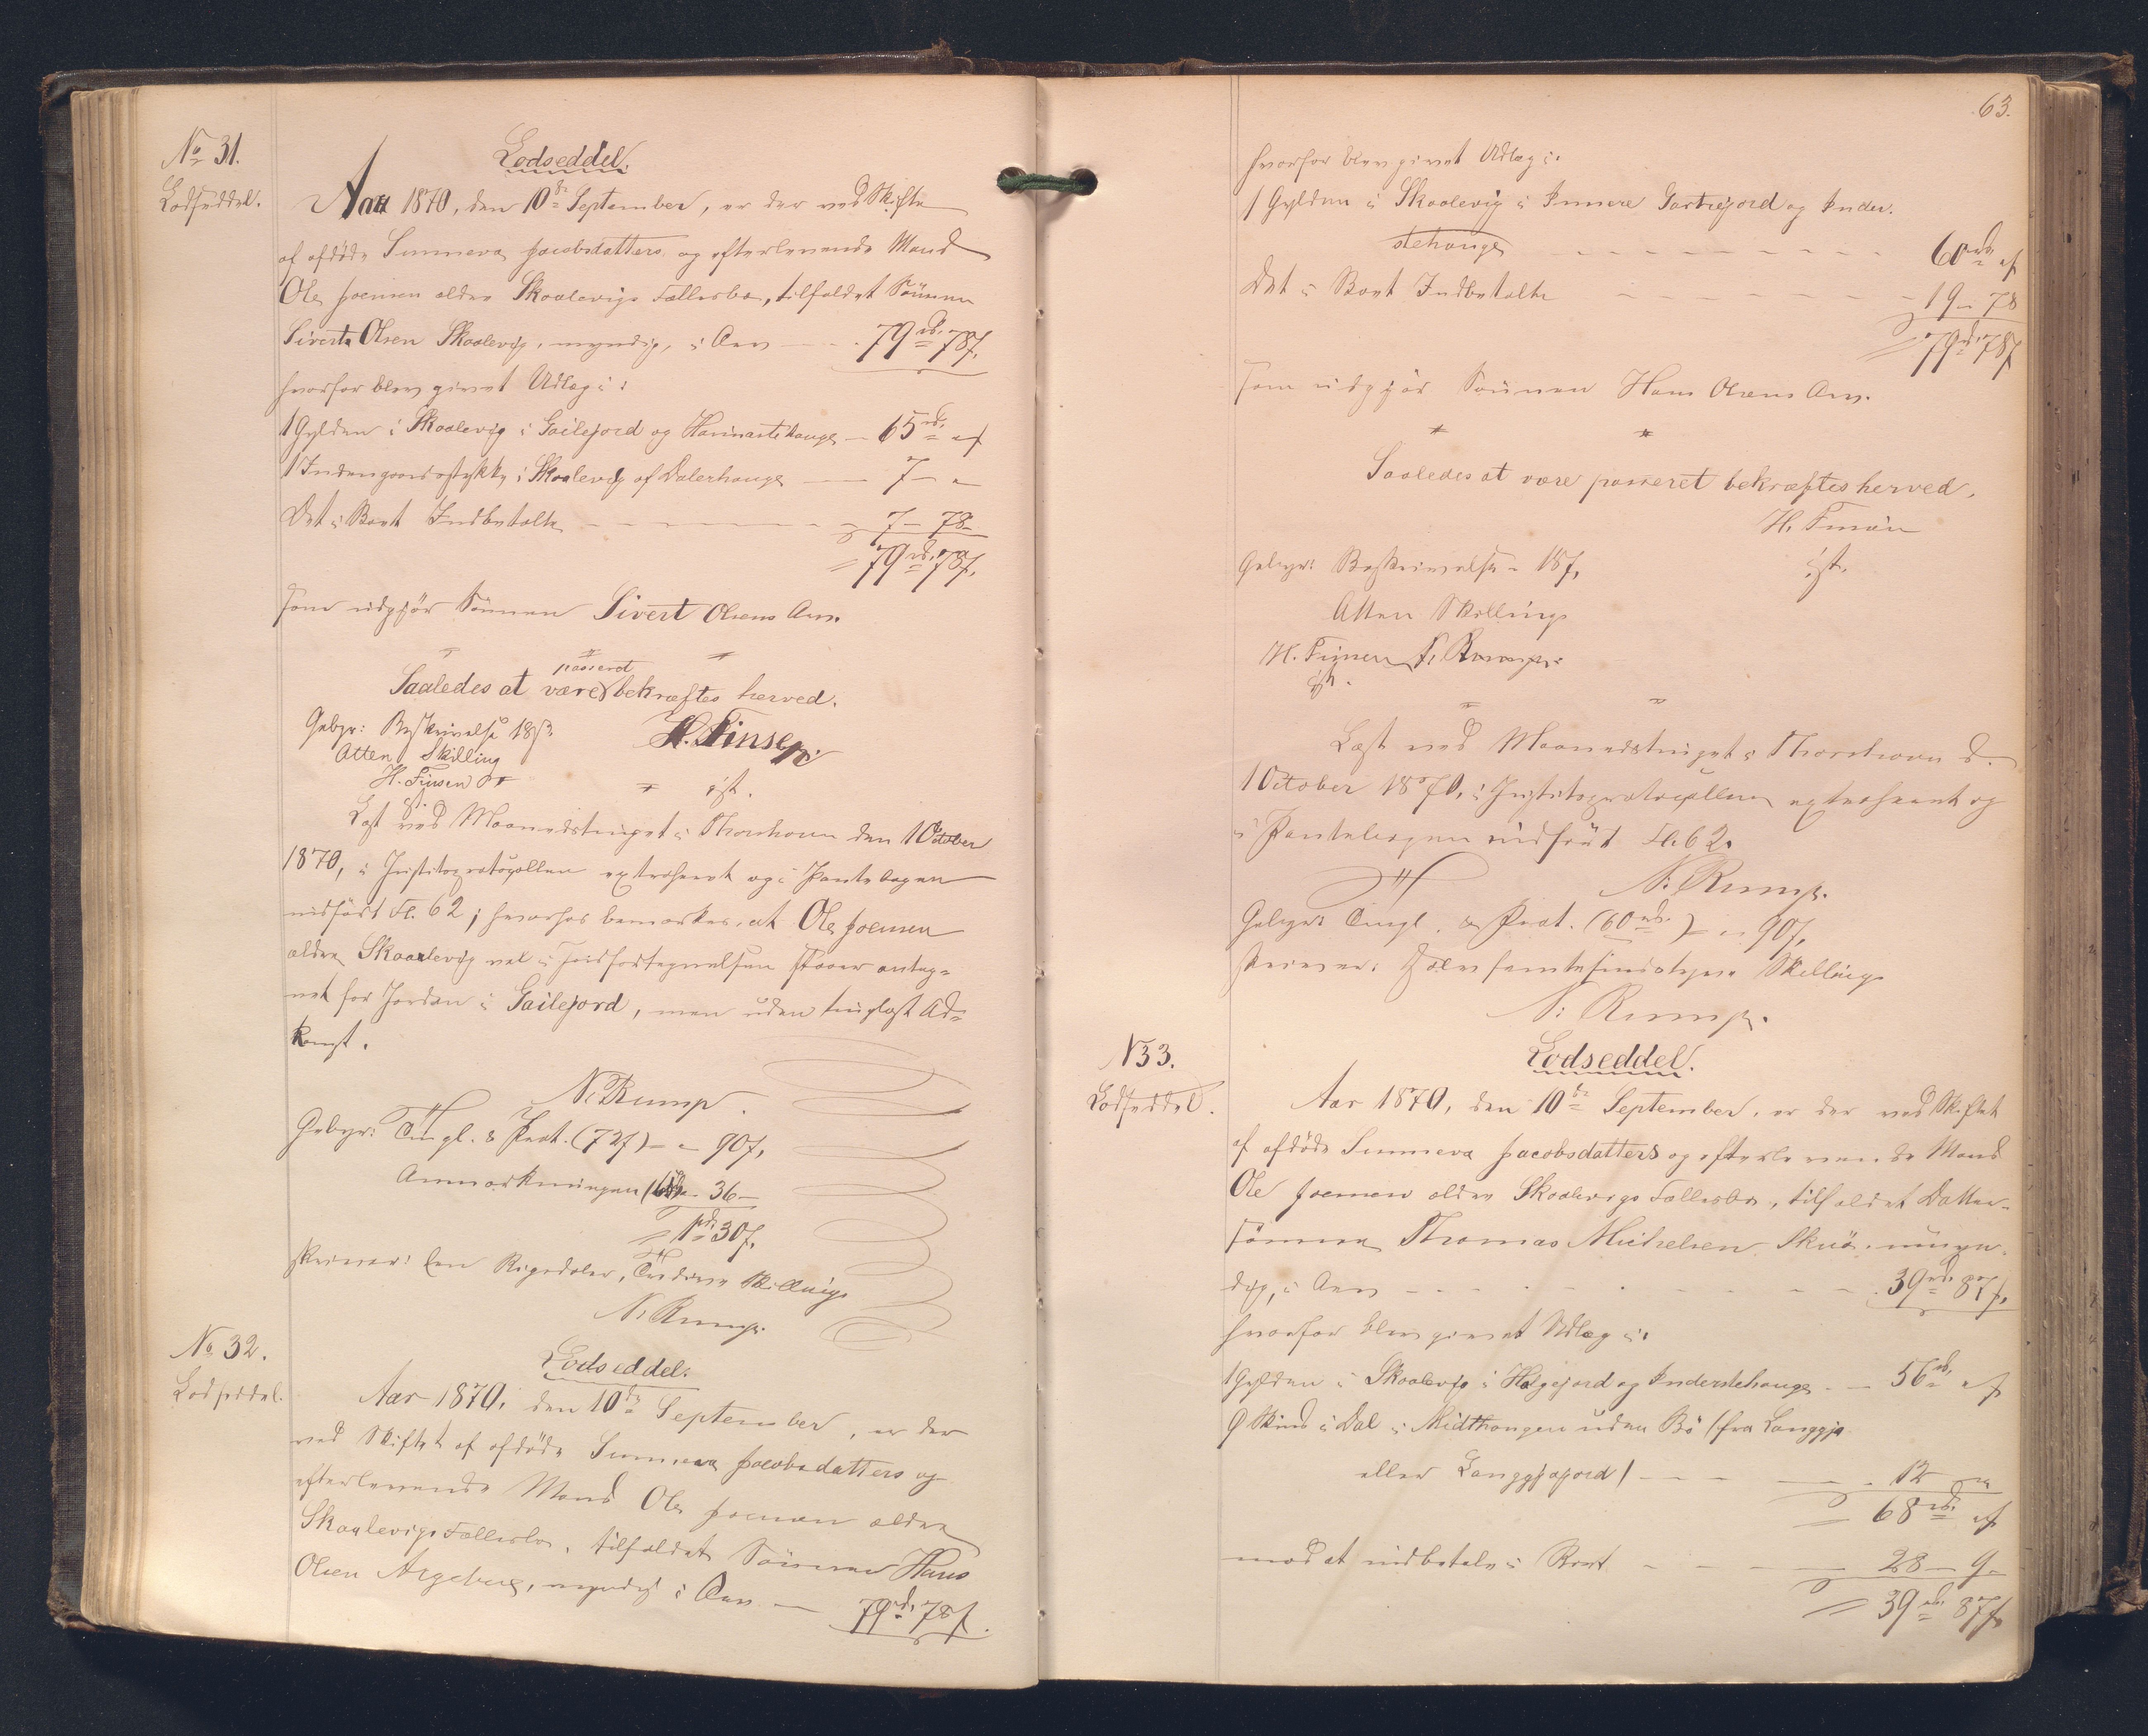 No 31.
Lodseddel.
Lodseddel.
Aar 1870, den 10de September, er der ved Skifte
af afdøde Sunneva Jacobsdatters og efterlevende Mand
Ole Joensen ældre Skaalevigs Fællesbo, tilfaldet Sönnen
Sivert Olsen Skaalevig, myndig, i Arv — 79rd. 78ß.
hvorfor blev givet Udlæg i:
1 Gylden i Skaalevig i Gailejord og Harinastehauge — 65rd. " ß
1 Indengaardsstykke i Skaalevig af Dalerhauge — 7 — "
Det i Boet Indbetalte — 7 — 78 -
= 79rd. 78ß.
som udgjör Sönnen Sivert Olsens Arv.
Saaledes at være passeret bekræftes herved.
Gebyr: Beskrivelse 18ß
H. Finsen
Atten Skilling
H. Finsen
cst.
cst.
Læst ved Maanedstinget i Thorshavn den 1 October
1870, i Justitsprotocollen extraheret og i Pantebogen
indført Fl. 62; hvorhos bemærkes, at Ole Joensen
ældre Skaalevig vel i Jordfortegnelsen staaer anteg-
net for Jorden i Gailejord, men uden tinglæst Ad-
komst.
N. Rump.
Gebyr: Tingl. & Prot. (72ß) — " 90ß.
Anmærkningen — 36 —
= 1rd. 30ß.
skriver: Een Rigsdaler, Tredive Skilling
N. Rump.
No 32.
Lodseddel.
Lodseddel.
Aar 1870, den 10de September, er der
ved Skiftet af afdøde Sunneva Jacobsdatters og
efterlevende Mand Ole Joensen ældre
Skaalevigs Fællesbo, tilfaldet Sönnen Hans
Olsen Argeberg, myndig i Arv — 79rd. 78ß.
63.
hvorfor blev givet Udlæg i:
1 Gylden i Skaalevig i Innere Gartiejord og Inder-
stehauge — 60rd. " ß
Det i Boet Indbetalte — 19 — 78
= 79rd. 78ß
som udgjör Sönnen Hans Olsens Arv.
Saaledes at være passeret bekræftes herved.
H. Finsen
Gebyr: Beskrivelse - 18ß.
cst.
Atten Skilling
H. Finsen f. Rump.
cst.
Læst ved Maanedstinget i Thorshavn d.
1 October 1870, i Justitsprotocollen extraheret og
i Pantebogen indført Fl. 62.
N. Rump.
Gebyr: Tingl. & Prot. (60rd.) = " 90ß.
skriver: Halvfemtesindstyve Skilling
N. Rump.
N 33.
Lodseddel.
Lodseddel.
Aar 1870, den 10de September, er der ved Skiftet
af afdøde Sunneva Jacobsdatters og efterlevende Mands
Ole Joensen ældre Skaalevigs Fællesbo, tilfaldet Datter-
sönnen Thomas Michelsen Skuö, umyn-
dig, i Arv — 39rd. 87ß.
hvorfor blev givet Udlæg i:
1 Gylden i Skaalevig i Hølgejord og Inderstehauge — 56rd. " ß
9 Skind i Dal i Midthaugen uden Bö (fra Langgja
eller Langgjajord) — 12 — "
= 68rd. " ß
mod at indbetale i Boet — 28 — 9 -
= 39rd. 87ß